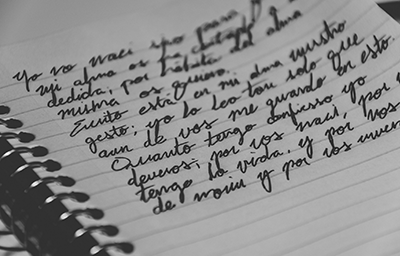 Yo no nací sino para
mi alma os ha cortado a
dedida; por hábito del alma
misma os quiero.
Escrito está en mi alma vuestro
gesto; yo lo leo tan solo que
aun de vos me guardo en esto.
Quanto tengo confieso yo
deveros; por vos nací, por
tengo la vida, y por vos
de morir y por vos muero